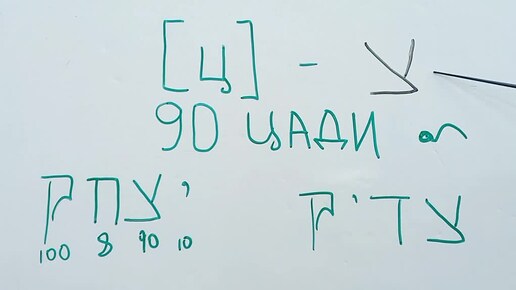 [ц] - צ
90 ЦАДИ
צדיק יצחק
100 8 90 10